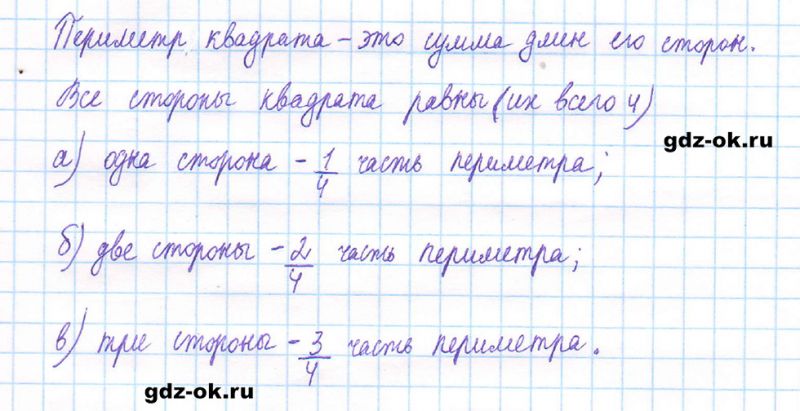 Периметр квадрата - это сумма длин его сторон.
Все стороны квадрата равны (их всего 4)
gdz-ok.ru
а) одна сторона - 1/4 часть периметра;
б) две стороны - 2/4 часть периметра;
в) три стороны - 3/4 часть периметра.
gdz-ok.ru